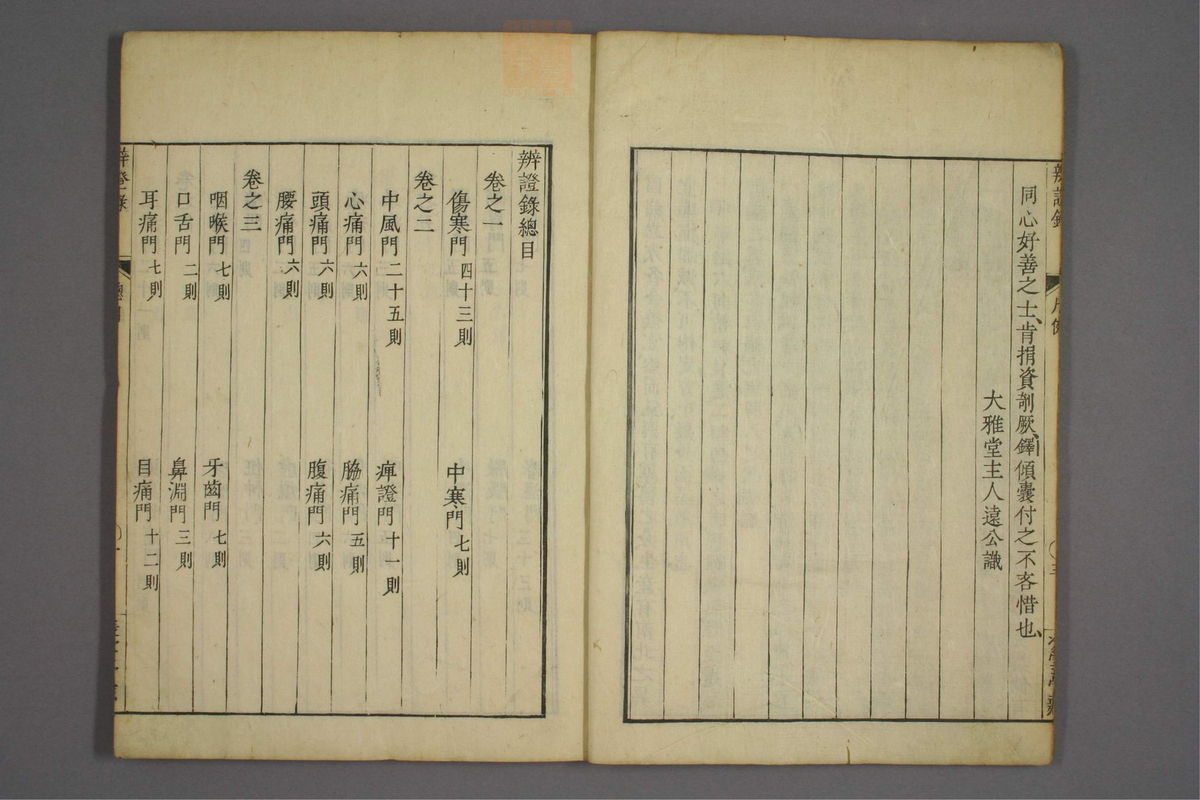 同心好善之士肯捐資剞厥鐸傾囊付之不吝惜也
大雅堂主人遠公識
辨證錄總目
卷之一
傷寒門 四十三則 中寒門 七則
卷之二
中風門 二十五則 痺證門 十一則
心痛門 六則 脇痛門 五則
頭痛門 六則 腹痛門 六則
腰痛門 六則
卷之三
咽喉門 七則 牙齒門 七則
口舌門 二則 鼻淵門 三則
耳痛門 七則 目痛門 十二則